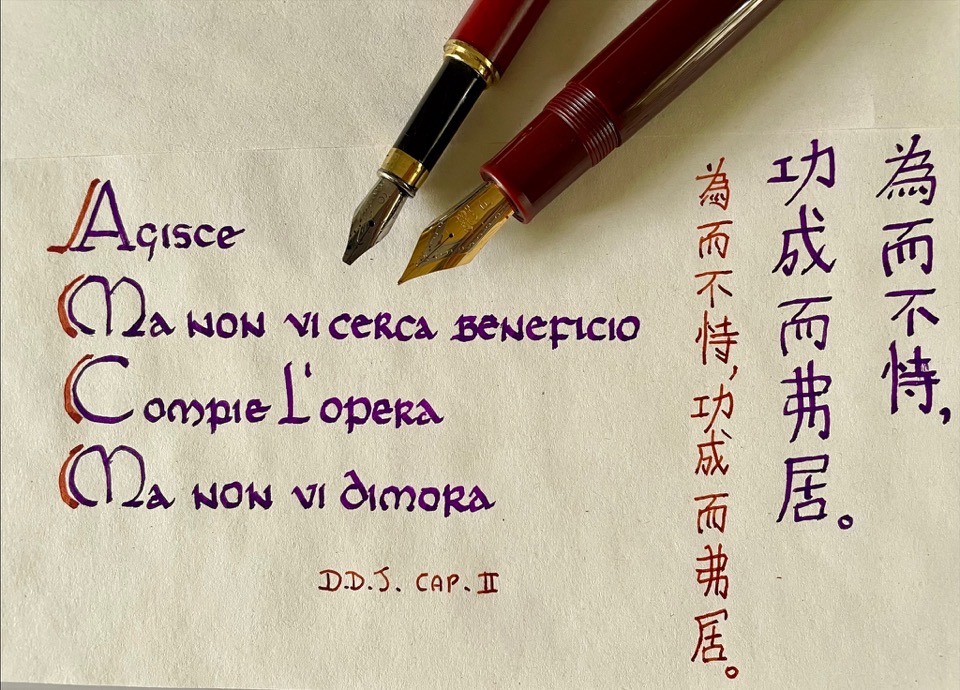 Agisce
Ma non vi cerca beneficio
Compie L'opera
Ma non vi dimora
D.D.J. CAP. II
為而不恃,
功成而弗居。
為而不恃,功成而弗居。